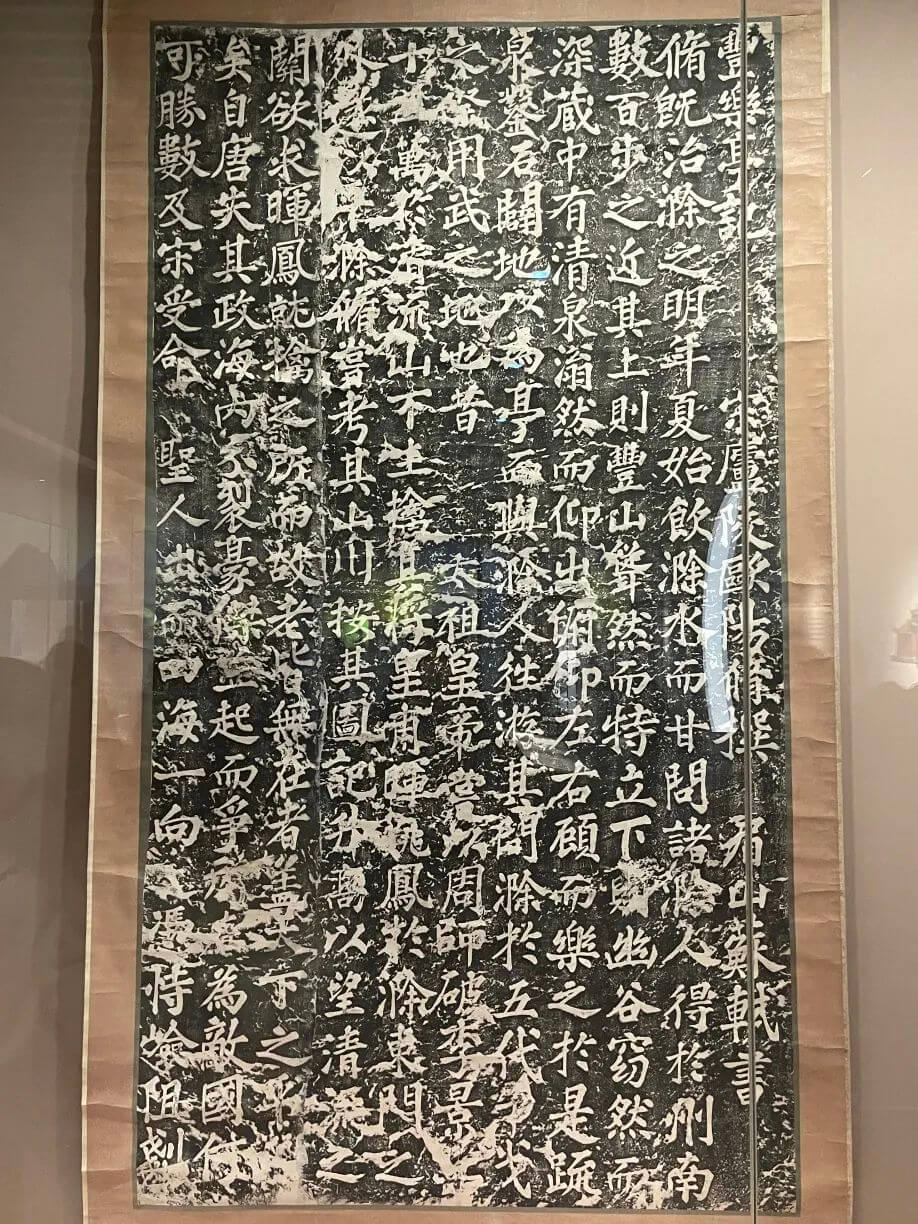 豐樂亭記 宋廬陵歐陽脩撰 眉山蘇軾書
脩既治滁之明年夏始飲滁水而甘問諸滁人得於州南
數百步之近其上則豐山聳然而特立下則幽谷窈然而
深藏中有清泉滃然而仰出俯仰左右顧而樂之於是疏
泉鑿石闢地以為亭而與滁人往游其間滁於五代干戈
之際用武之地也昔 太祖皇帝嘗以周師破李景
十五萬於清流山下生擒其將皇甫暉姚鳳於滁東門之
外遂以平滁脩嘗考其山川按其圖記升高以望清流之
關欲求暉鳳就擒之所而故老皆無在者蓋天下之平
矣自唐失其政海內分裂豪傑並起而爭所在為敵國何
可勝數及宋受命 聖人出而四海一向之憑恃險阻剗